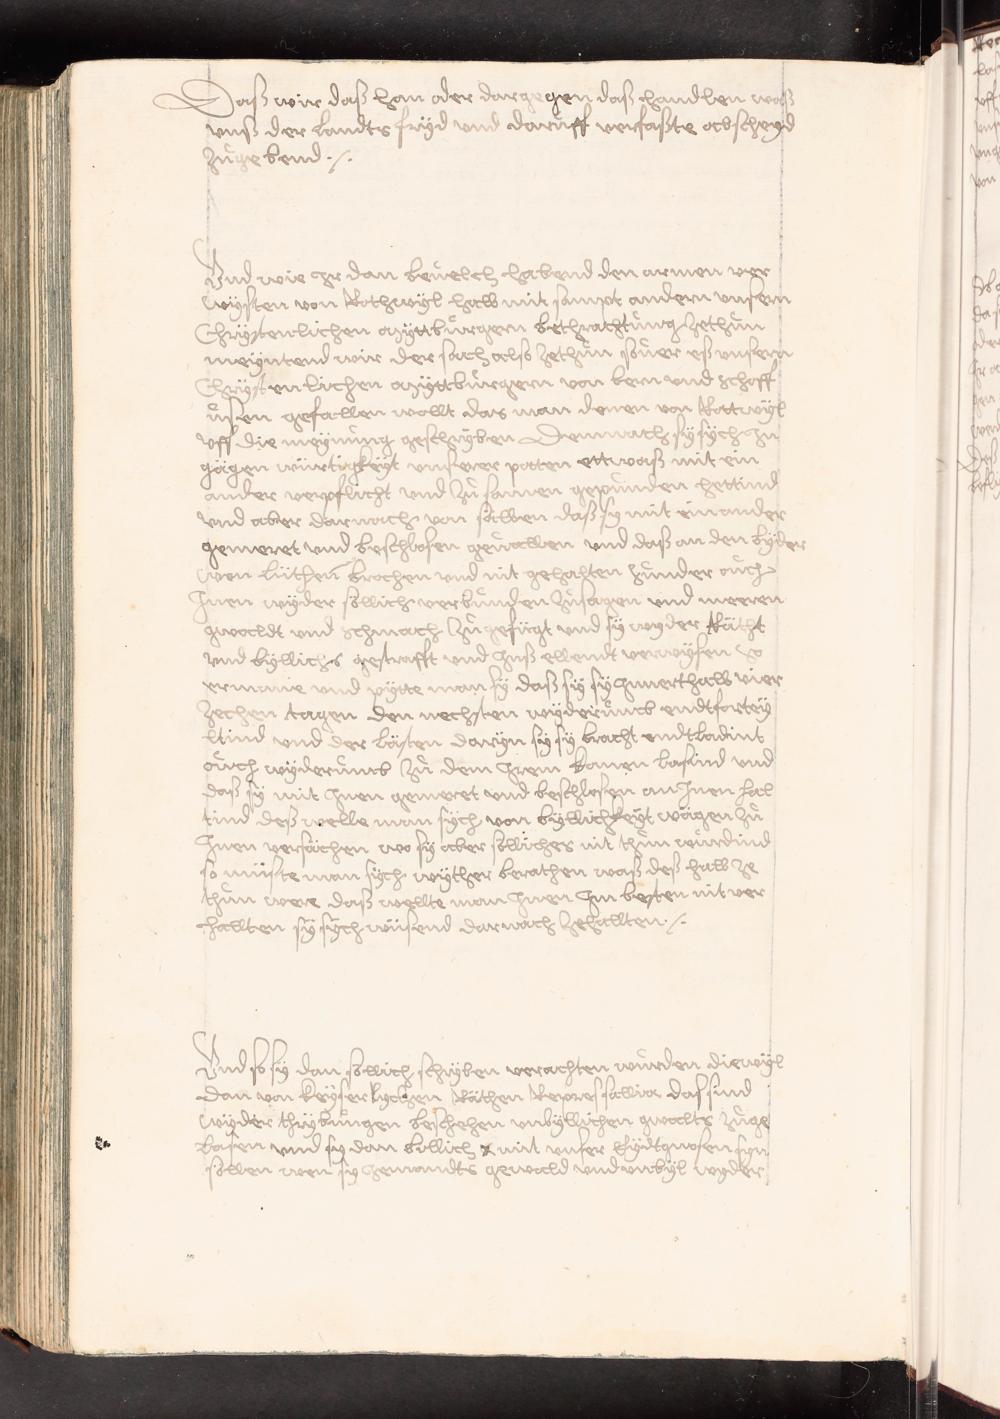 Daß wir daß han oder dargegen daß handlen waß
unß der Landts fryd und daruff verfaßte abscheyd
zůgebend ./.
Und wie ir dan bevelch habend den armen ver
wysten von Rothwyl halb mit sampt andern unsern
Chrystenlichen Myttburgern bethrachtung zethůn
meyntend wir der sach also zethůn so ver es unsern
Chrystenlichen Myttburgern von bern und schaff
usen gefallen wollt das man denen von Rottwyl
uff die meynung geschryben Demnach sy sych in
gägen würtigkeyt unserer potten ettwaß mit ein
ander verpflicht und zů samen gepunden hettind
und aber darnach von söllen daß sy mit einander
gemeret und beschlosen gewallen und daß an den byder
wen lüthen brochen und nit gehalten sunder ouch
Inen wyder sollich verbunden zůsagen und meeren
gwaldt und schmach zůgefügt und sy wyder Räth
und byllichs gestrafft und Inß ellendt verwysen so
ermane und pytte man sy daß sy sy Innerthalb vier
zechen tagen den nechsten wyderumb endtfortey
ltind und der lästen daryn sy sy bracht endtladint
ouch wyderumb zů dem Irem komen lasind und
daß sy mit Inen gemeret und beschlosen an Inen hal
tind deß welle man sych von byllichkeyt wägen zů
Inen versächen wo sy aber sölliches nit thůn wurdind
so müste man sych wyther berathen waß deß halb ze
thůn were daß wellte man Inen Im besten nit ver
hallten sy sych wüsend darnach zehallten ./.
Und so sy dan sollich schryben verachten wurden diewyl
dan von keyserlychen Räthen das sind
wyder thrybungen beschehen unbyllichen gwallts zůge
lasen und sy dan billich mit unser Eydtgnosen syn
sollen wen sy Iemandts gewald und unbyl wyder